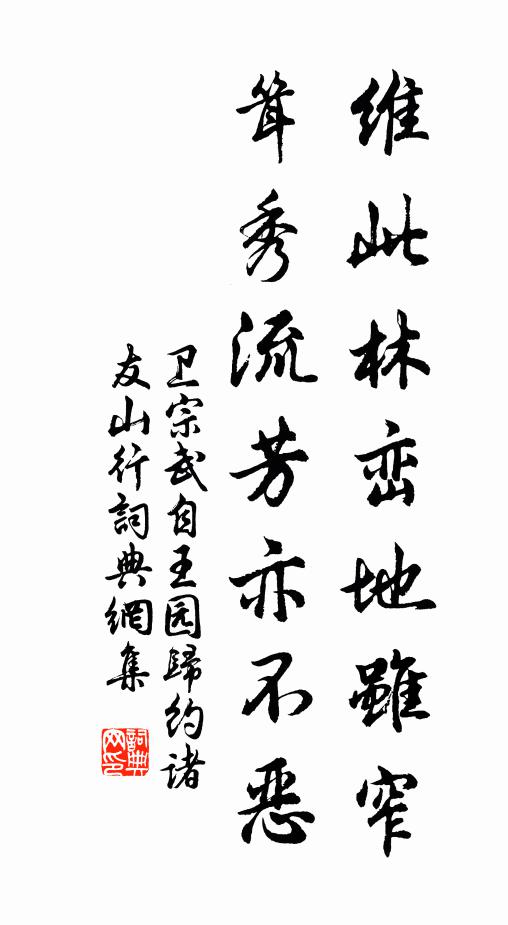 維此林峦地雖窄
耸秀流芳亦不恶
卫宗武自王园歸约诸
友山行詞典網集
詞典网印